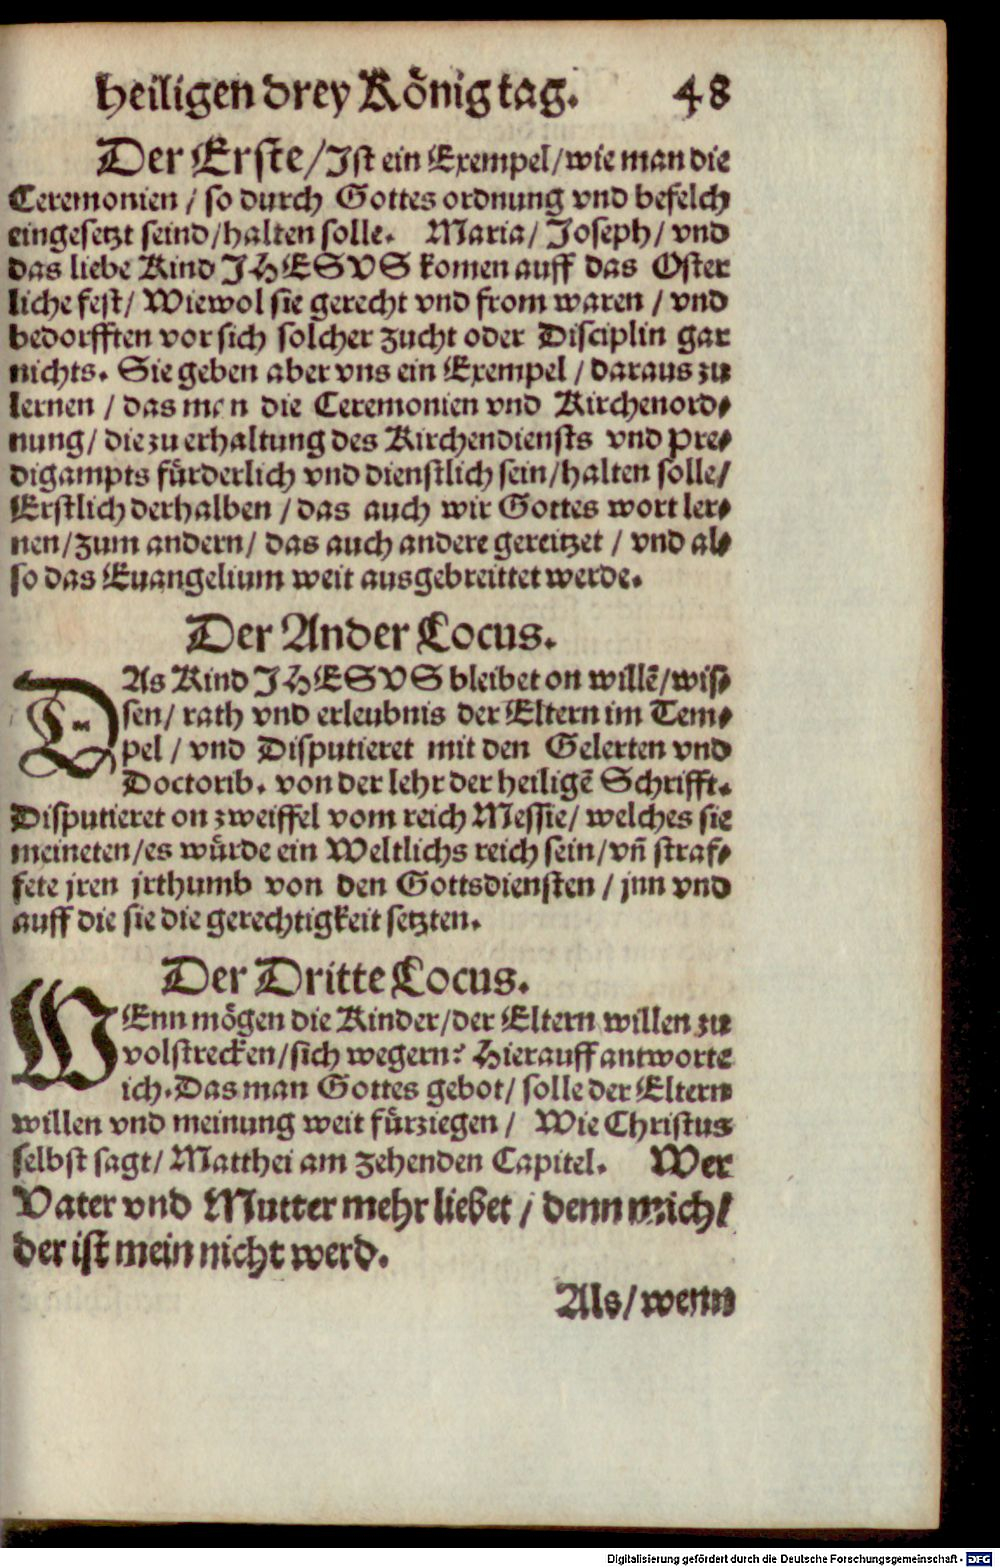 heiligen drey Koͤnig tag. 48
Der Erste/Ist ein Exempel/wie man die
Ceremonien / so durch Gottes ordnung vnd befelch
eingesetzt seind/halten solle. Maria/ Joseph/ vnd
das liebe Kind JHESVS komen auff das Oster
liche fest/ Wiewol sie gerecht vnd from waren / vnd
bedorfften vor sich solcher zucht oder Disciplin gar
nichts. Sie geben aber vns ein Exempel / daraus zu
lernen / das man die Ceremonien vnd Kirchenord⸗
nung/ die zu erhaltung des Kirchendiensts vnd Pre⸗
digampts fuͤrderlich vnd dienstlich sein/halten solle/
Erstlich derhalben / das auch wir Gottes wort ler⸗
nen/zum andern/ das auch andere gereitzet / vnd al⸗
so das Euangelium weit ausgebreittet werde.
Der Ander Locus.
DAs Kind JHESVS bleibet on willē/wis⸗
sen/ rath vnd erleubnis der Eltern im Tem⸗
pel / vnd Disputieret mit den Gelerten vnd
Doctorib. von der lehr der heiligē Schrifft.
Disputieret on zweiffel vom reich Messie/ welches sie
meineten/es wuͤrde ein Weltlichs reich sein/vn̄ straf⸗
fete jren jrthumb von den Gottsdiensten / jnn vnd
auff die sie die gerechtigkeit setzten.
Der Dritte Locus.
WEnn moͤgen die Kinder/der Eltern willen zu
volstrecken/sich wegern? Hierauff antworte
ich. Das man Gottes gebot/ solle der Eltern
willen vnd meinung weit fuͤrziegen / Wie Christus
selbst sagt/ Matthei am zehenden Capitel. Wer
Vater vnd Mutter mehr liebet / denn mich/
der ist mein nicht werd.
Als/wenn
Digitalisierung gefördert durch die Deutsche Forschungsgemeinschaft - DFG